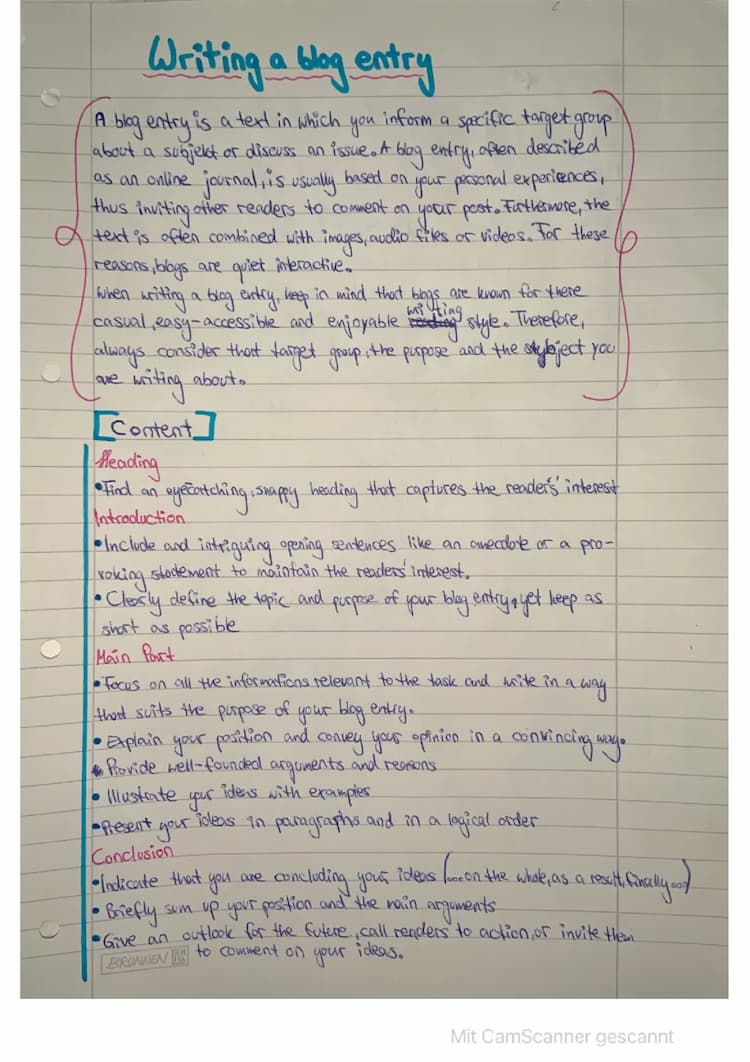 Writing a blog entry
A blog entry is a text in which you inform a specific target group
about a subjekt or discuss an issue. A blog entry, often described
as an online journal, is usually based on your personal experiences,
thus inviting other readers to comment on your post. Furthermore, the
text is often combined with images, audio files or videos. For these
reasons, blogs are quiet interactive.
When writing a blog entry, keep in mind that blogs are known for there
casual, easy-accessible and enjoyable writing style. Therefore,
always consider that target group, the purpose and the subject you
are writing about.
[Content]
Heading
• Find an eyecatching, snappy heading that captures the readers' interest
Introduction
• Include and intriguing opening sentences like an anecdote or a pro-
voking statement to maintain the readers' interest.
• Clearly define the topic and purpose of your blog entry, yet keep as
short as possible
Main Part
• Focus on all the informations relevant to the task and write in a way
that suits the purpose of your blog entry.
• Explain your position and convey your opinion in a convincing way.
• Provide well-founded arguments and reasons
• Illustrate your ideas with examples
• Present your ideas in paragraphs and in a logical order
Conclusion
• Indicate that you are concluding your ideas (...on the whole, as a result, finally...)
• Briefly sum up your position and the main arguments
• Give an outlook for the future, call readers to action, or invite them
BRUNNEN to comment on your ideas.
Mit CamScanner gescannt